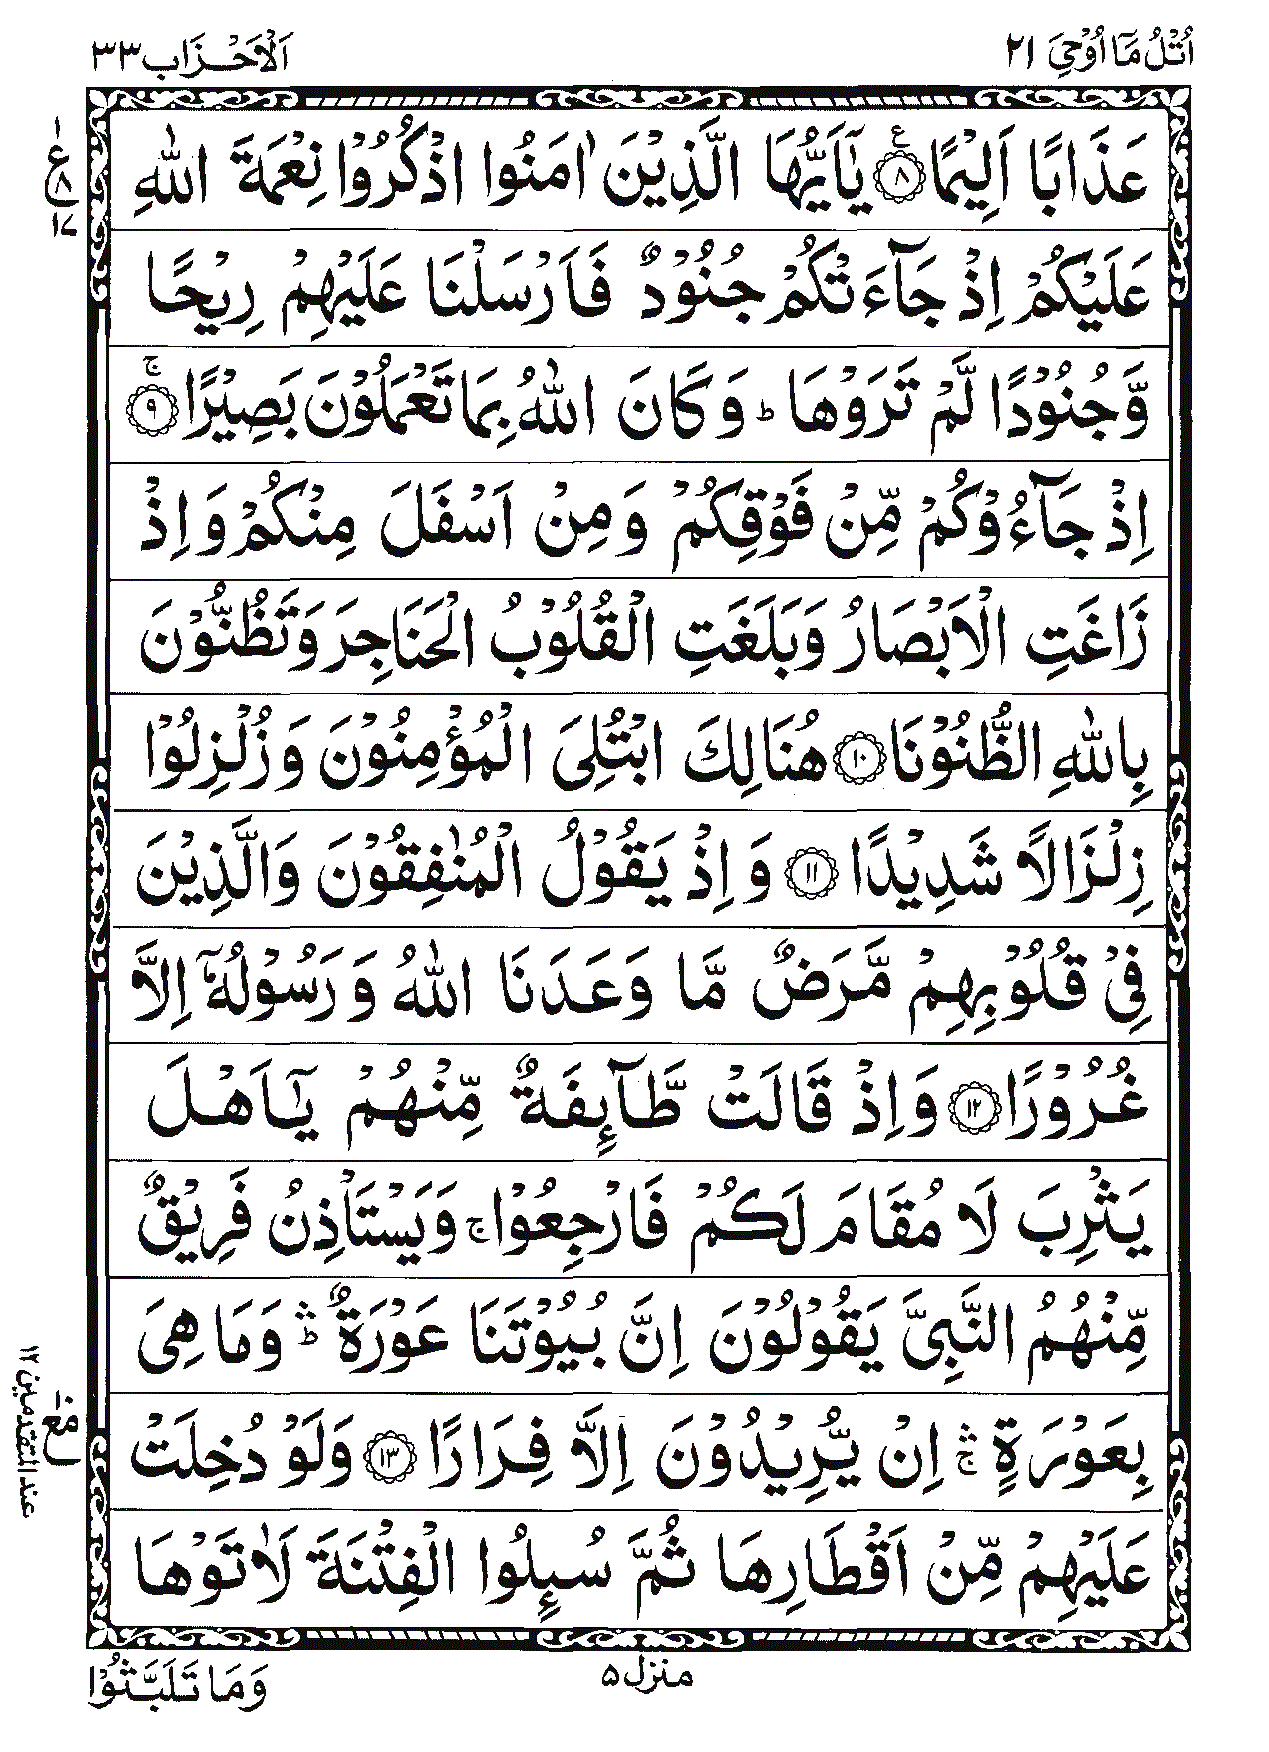 اُتْلُ مَاۤ اُوْحِیَ ٢١
اَلْاَحْزَاب ٣٣
عَذَابًا اَلِیْمًا ۟ ٨ ع یٰۤاَیُّهَا الَّذِیْنَ اٰمَنُوا اذْكُرُوْا نِعْمَةَ اللّٰهِ
عَلَیْكُمْ اِذْ جَآءَتْكُمْ جُنُوْدٌ فَاَرْسَلْنَا عَلَیْهِمْ رِیْحًا
وَّجُنُوْدًا لَّمْ تَرَوْهَا ؕ وَكَانَ اللّٰهُ بِمَا تَعْمَلُوْنَ بَصِیْرًا ۚ ٩
اِذْ جَآءُوْكُمْ مِّنْ فَوْقِكُمْ وَمِنْ اَسْفَلَ مِنْكُمْ وَاِذْ
زَاغَتِ الْاَبْصَارُ وَبَلَغَتِ الْقُلُوْبُ الْحَنَاجِرَ وَتَظُنُّوْنَ
بِاللّٰهِ الظُّنُوْنَا ١٠ هُنَالِكَ ابْتُلِیَ الْمُؤْمِنُوْنَ وَزُلْزِلُوْا
زِلْزَالًا شَدِیْدًا ١١ وَاِذْ یَقُوْلُ الْمُنٰفِقُوْنَ وَالَّذِیْنَ
فِیْ قُلُوْبِهِمْ مَّرَضٌ مَّا وَعَدَنَا اللّٰهُ وَرَسُوْلُهٗۤ اِلَّا
غُرُوْرًا ١٢ وَاِذْ قَالَتْ طَّآىِٕفَةٌ مِّنْهُمْ یٰۤاَهْلَ
یَثْرِبَ لَا مُقَامَ لَكُمْ فَارْجِعُوْا ۚ وَیَسْتَاْذِنُ فَرِیْقٌ
مِّنْهُمُ النَّبِیَّ یَقُوْلُوْنَ اِنَّ بُیُوْتَنَا عَوْرَةٌ ۛؕ وَمَا هِیَ
بِعَوْرَةٍ ۛۚ اِنْ یُّرِیْدُوْنَ اِلَّا فِرَارًا ١٣ وَلَوْ دُخِلَتْ
عَلَیْهِمْ مِّنْ اَقْطَارِهَا ثُمَّ سُىِٕلُوا الْفِتْنَةَ لَاٰتَوْهَا
١
ع ٨
١٧
مع
عند المتقدمین ١٢
منزل ٥
وَمَا تَلَبَّثُوْا